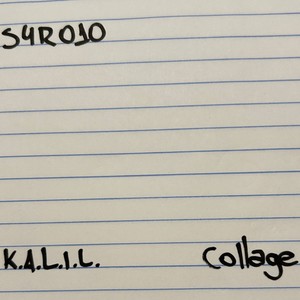 S4R010
K.A.L.I.L. Collage